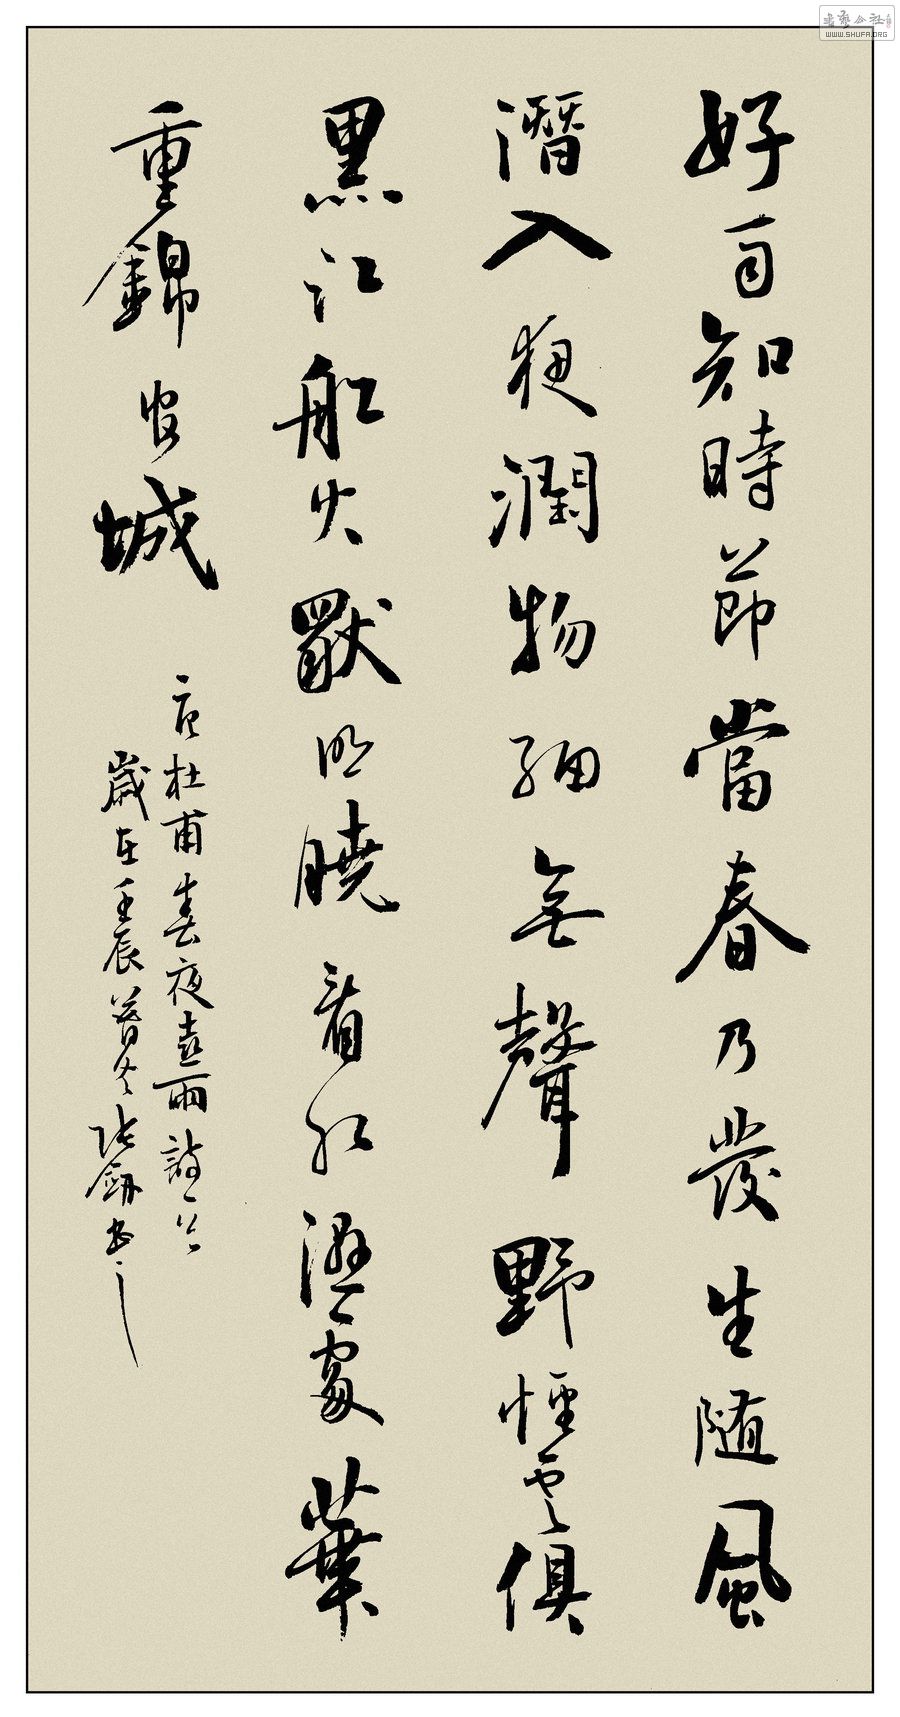 好雨知時節當春乃發生随風
潛入夜潤物細無聲野徑雲俱
黑江船火獨明曉看紅濕處華
重錦官城
唐杜甫春夜喜雨詩一首
歲在壬辰暮冬張劍書
書藝公社
WWW.SHUFA.ORG